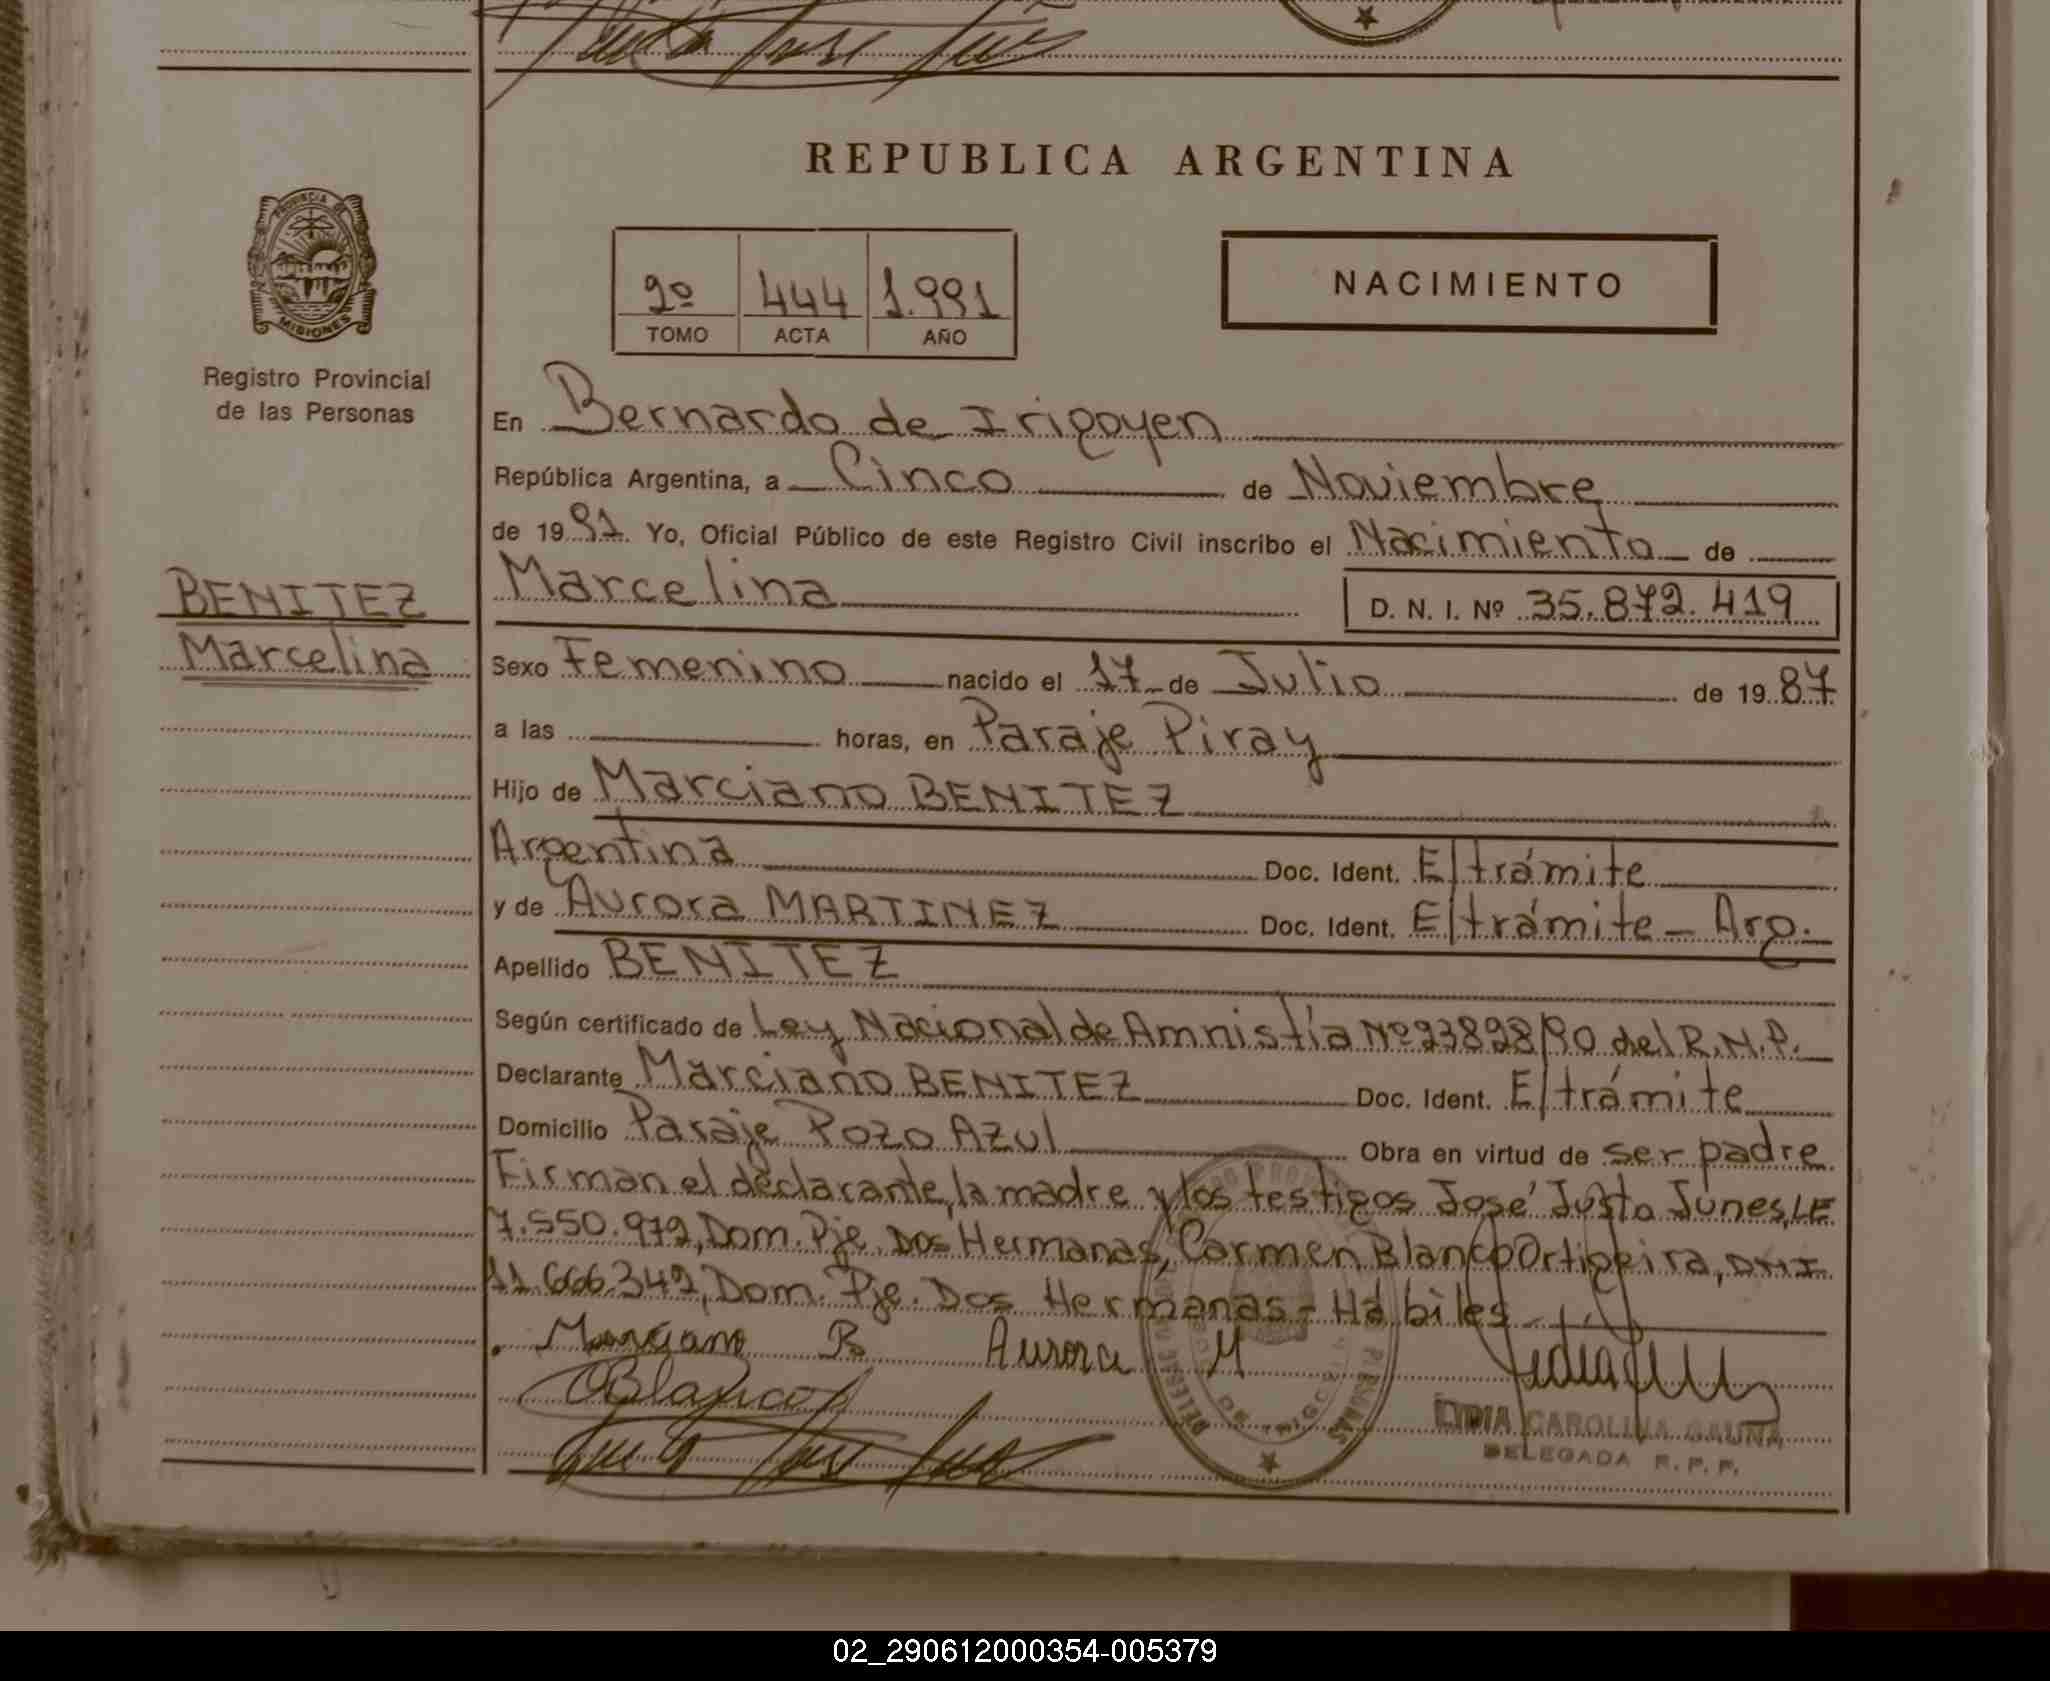 REPUBLICA ARGENTINA
PROVINCIA DE
MISIONES
Registro Provincial
de las Personas
2º 444 1.991
TOMO ACTA AÑO
NACIMIENTO
En Bernardo de Irigoyen
República Argentina, a Cinco de Noviembre
de 1991. Yo, Oficial Público de este Registro Civil inscribo el Nacimiento de
BENITEZ
Marcelina
Marcelina D. N. I. Nº 35.872.419
Sexo Femenino nacido el 17 de Julio de 1987
a las horas, en Paraje Piray
Hijo de Marciano BENITEZ
Argentina Doc. Ident. E/trámite
y de Aurora MARTINEZ Doc. Ident. E/trámite - Arg.
Apellido BENITEZ
Según certificado de Ley Nacional de Amnistía Nº 23828/90 del R.N.P.
Declarante Marciano BENITEZ Doc. Ident. E/trámite
Domicilio Paraje Pozo Azul Obra en virtud de ser padre
Firman el declarante, la madre y los testigos José Justo Junes, LE
7.550.972, Dom. Pje. Dos Hermanas, Carmen Blanco Ortigeira, DNI
11.666.342, Dom. Pje. Dos Hermanas - Hábiles
Marciano B Aurora M
CBlanco
LIDIA CAROLINA GAUNA
DELEGADA R. P. P.
02_290612000354-005379